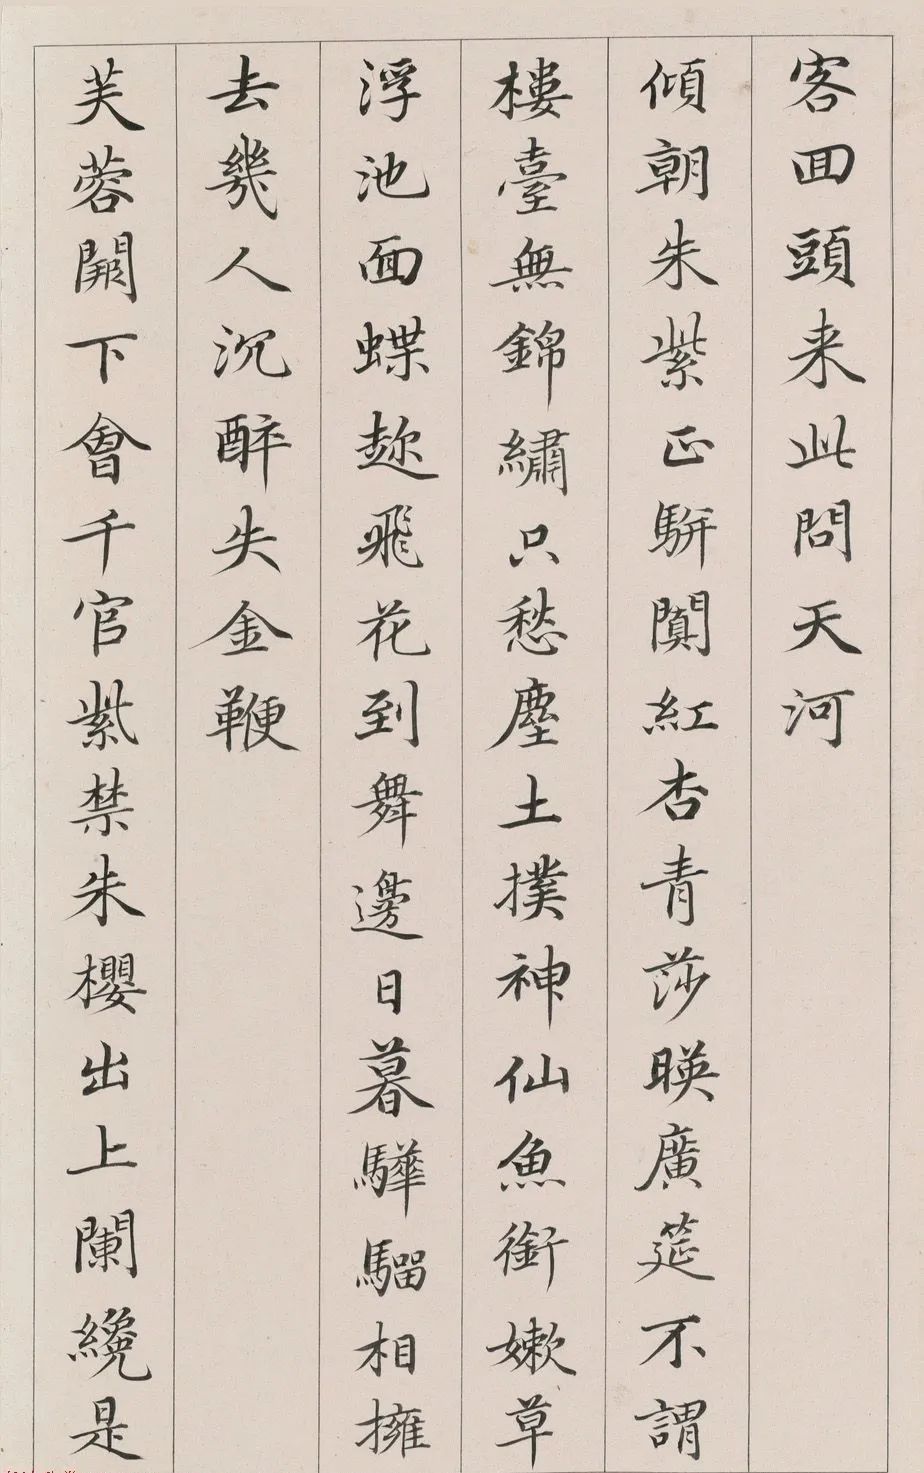 客回頭来此問天河
傾朝朱紫正駢闐紅杏青莎暎廣筵不謂
樓臺無錦繡只愁塵土撲神仙魚銜嫰草
浮池面蝶趂飛花到舞邊日暮驊騮相擁
去幾人沉醉失金鞭
芙蓉闕下會千官紫禁朱櫻出上闌纔是